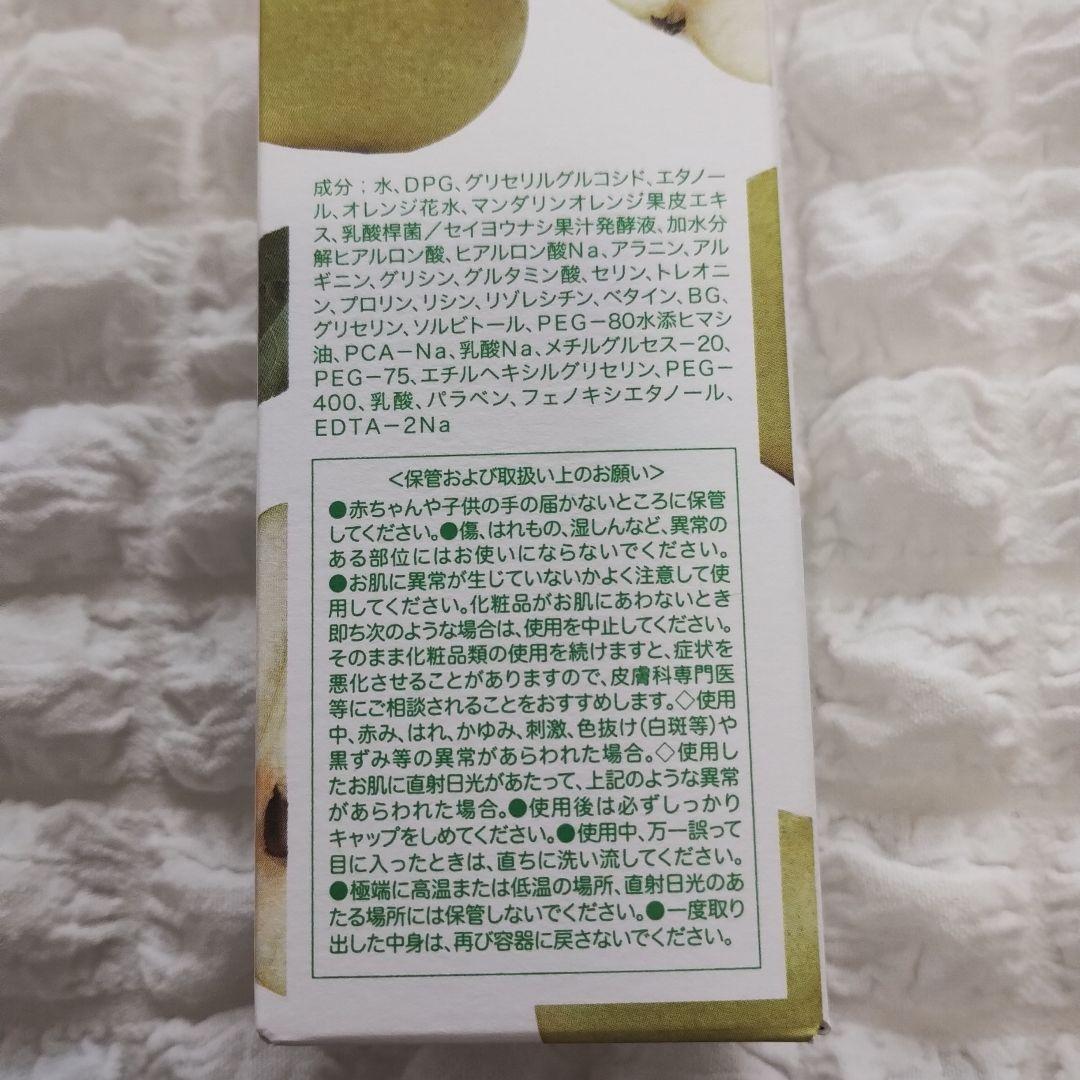 成分；水、DPG、グリセリルグルコシド、エタノー
ル、オレンジ花水、マンダリンオレンジ果皮エキ
ス、乳酸桿菌／セイヨウナシ果汁発酵液、加水分
解ヒアルロン酸、ヒアルロン酸Na、アラニン、アル
ギニン、グリシン、グルタミン酸、セリン、トレオニ
ン、プロリン、リシン、リゾレシチン、ベタイン、BG、
グリセリン、ソルビトール、PEG－80水添ヒマシ
油、PCA－Na、乳酸Na、メチルグルセス－20、
PEG－75、エチルヘキシルグリセリン、PEG－
400、乳酸、パラベン、フェノキシエタノール、
EDTA－2Na
＜保管および取扱い上のお願い＞
●赤ちゃんや子供の手の届かないところに保管
してください。●傷、はれもの、湿しんなど、異常の
ある部位にはお使いにならないでください。
●お肌に異常が生じていないかよく注意して使
用してください。化粧品がお肌にあわないとき
即ち次のような場合は、使用を中止してください。
そのまま化粧品類の使用を続けますと、症状を
悪化させることがありますので、皮膚科専門医
等にご相談されることをおすすめします。◇使用
中、赤み、はれ、かゆみ、刺激、色抜け（白斑等）や
黒ずみ等の異常があらわれた場合。◇使用し
たお肌に直射日光があたって、上記のような異常
があらわれた場合。●使用後は必ずしっかり
キャップをしめてください。●使用中、万一誤って
目に入ったときは、直ちに洗い流してください。
●極端に高温または低温の場所、直射日光のあ
たる場所には保管しないでください。●一度取り
出した中身は、再び容器に戻さないでください。